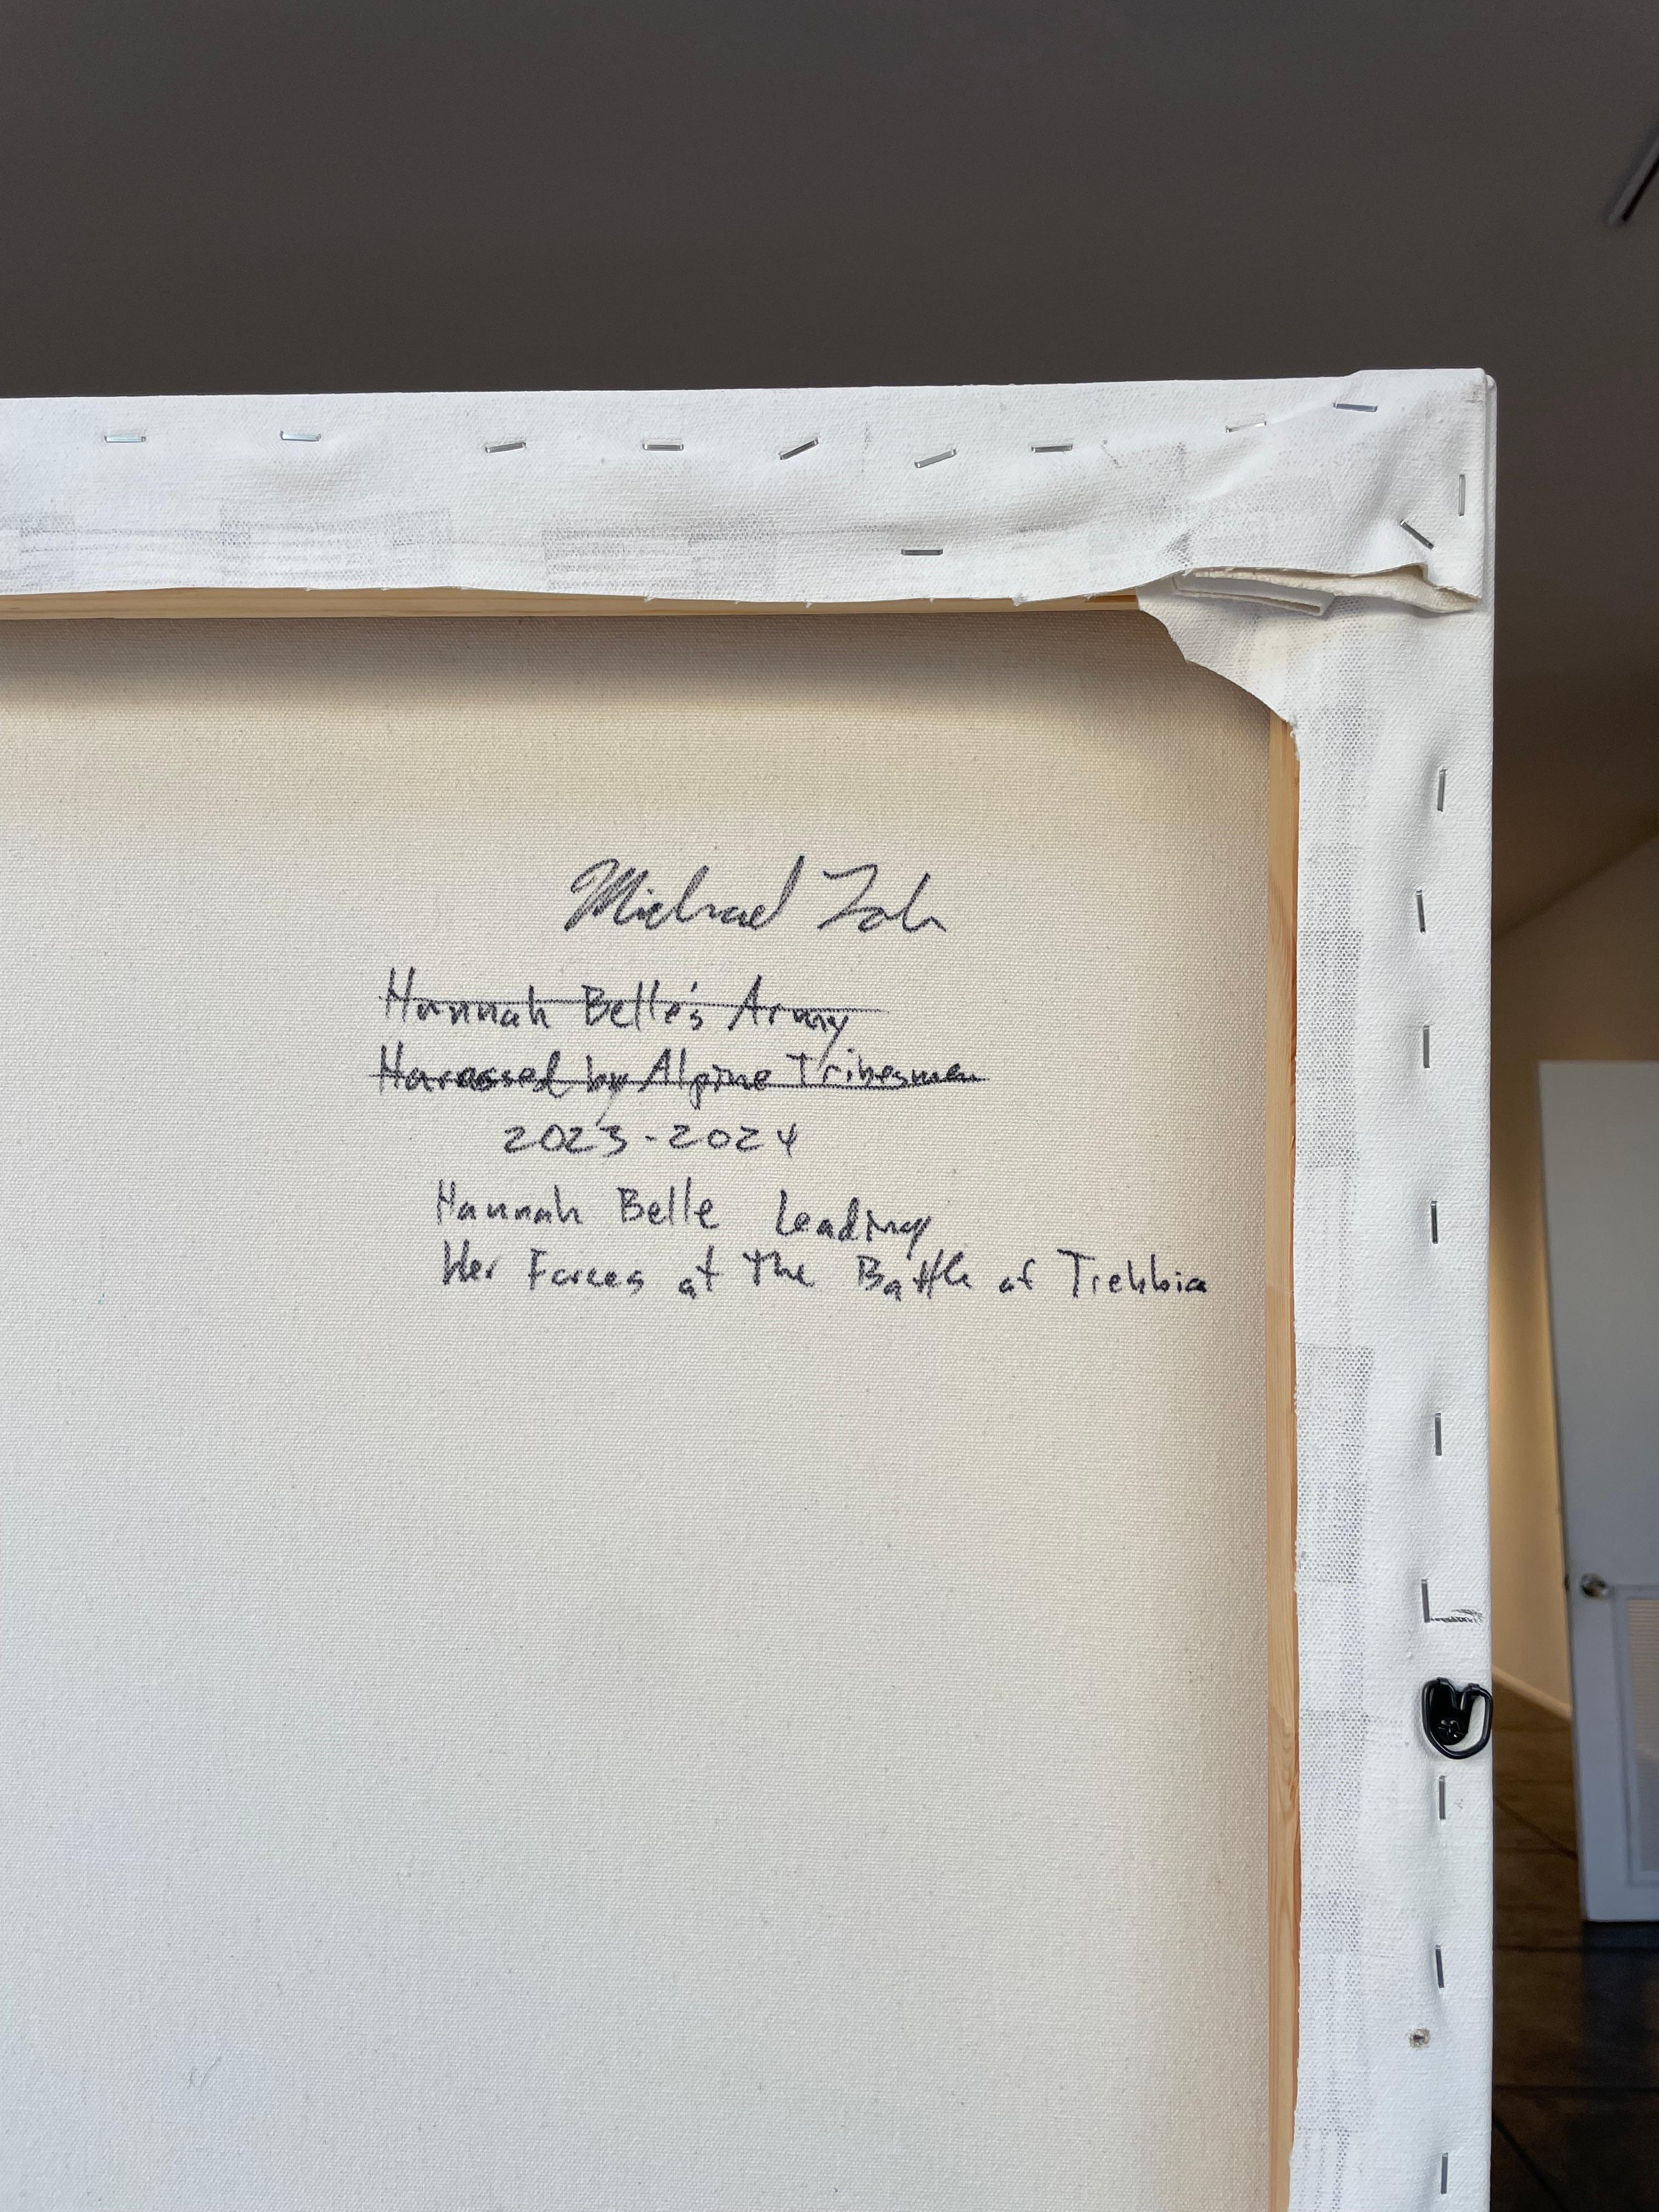 Michael
Hannah Belle's Army
Harassed by Alpine Tribesmen
2023-2024
Hannah Belle Leading
Her Forces at the Battle of Trebbia